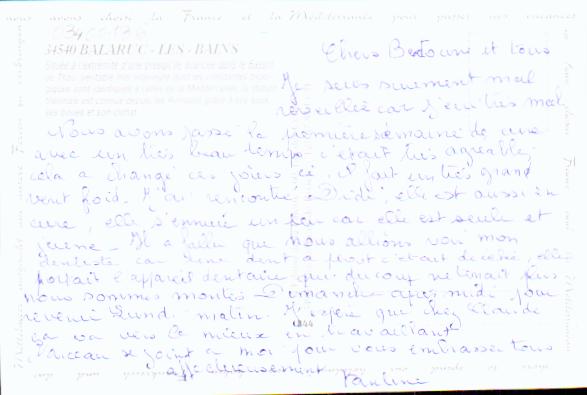 nous avons choisi la France et la Méditerranée pour passer nos vacances
34540 BALARUC - LES - BAINS
Située à l'extrémité d'une presqu'île avancée dans le Bassin
de Thau, véritable mer intérieure dont les
sont identiques à celles de la Méditerranée, la station
thermale est connue depuis les Romains grâce à ses eaux,
ses boues et son climat.
Chers et tous
Je suis surement mal
réveillée car j'écris très mal
Nous avons passé la première semaine de cure
avec un très beau temps c'était très agréable,
cela a changé ces jours ci. Il fait un très grand
vent froid. J'ai rencontré Didi, elle est aussi en
cure, elle s'ennuie un peu car elle est seule et
jeune - Il a fallu que nous allions voir mon
dentiste car une dent à pivot s'était decelée, elle
portait l'appareil dentaire qui du coup ne tenait plus
nous sommes montés Dimanche après midi pour
revenir Lundi matin. J'espère que chez
ça va vers le mieux en travaillant
se joint à moi pour vous embrasser tous
affectueusement
Pauline